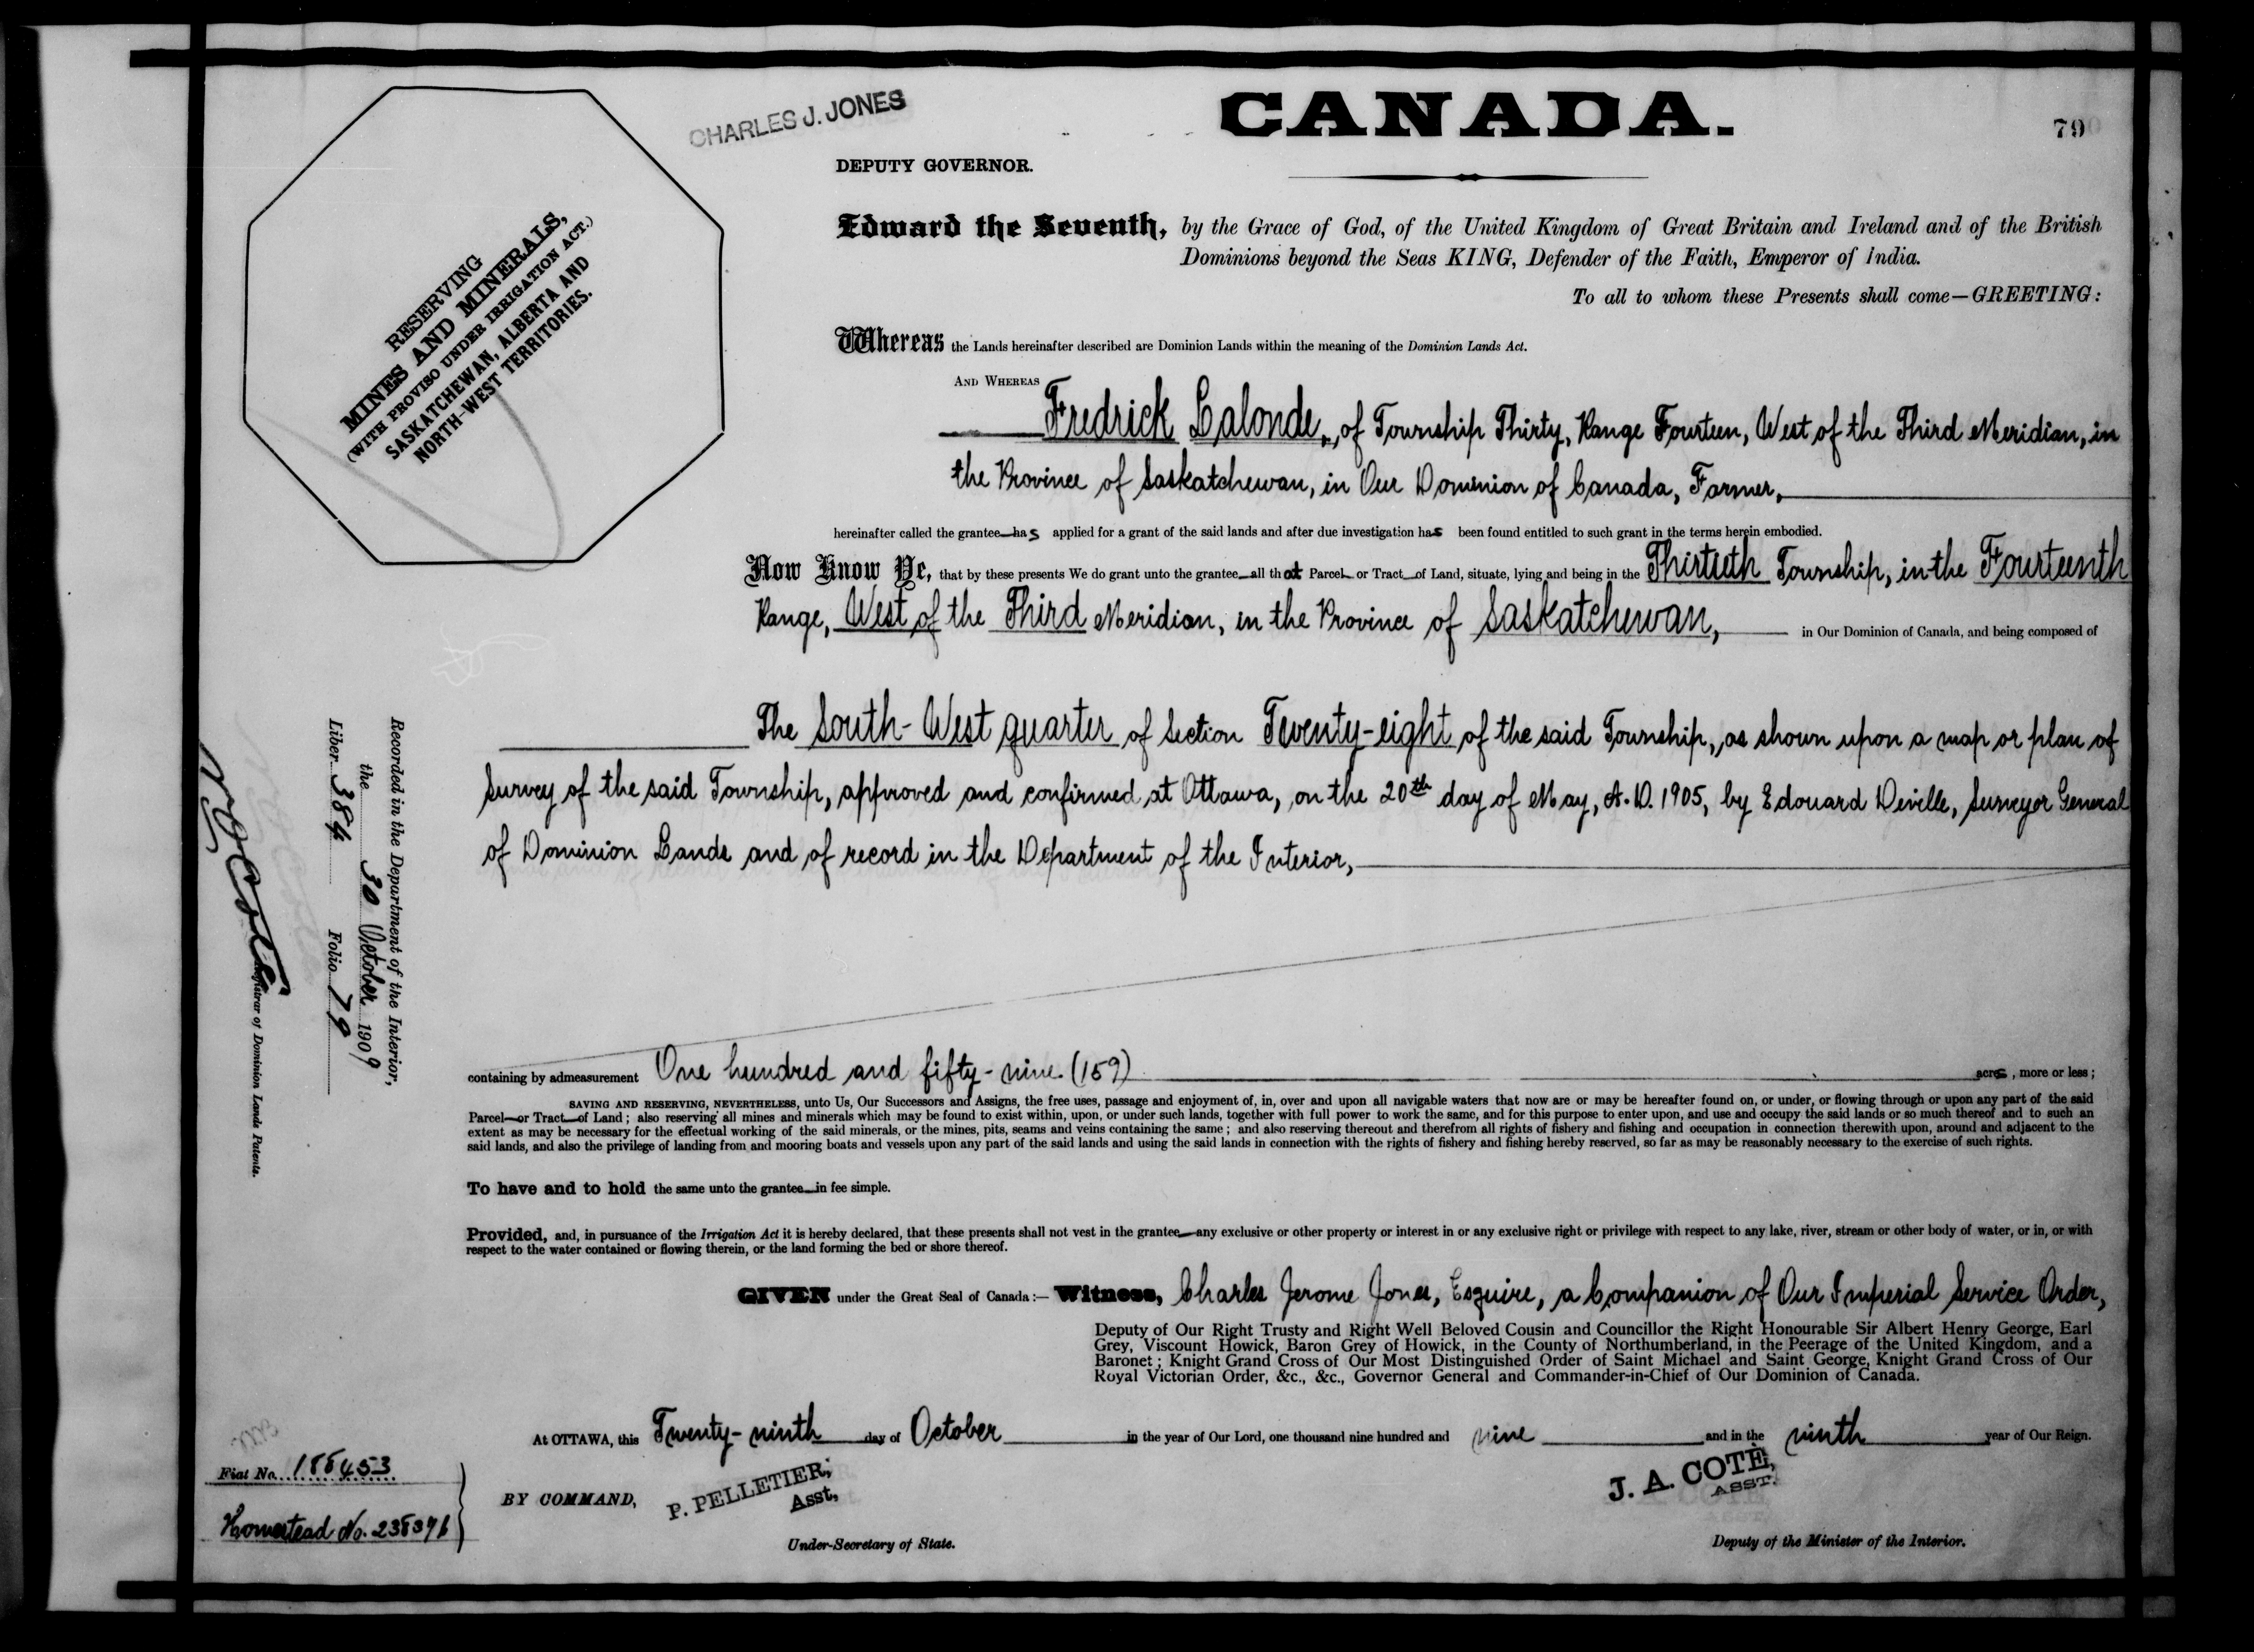 CHARLES J. JONES
CANADA.
79
DEPUTY GOVERNOR.
Edward the Seventh, by the Grace of God, of the United Kingdom of Great Britain and Ireland and of the British
Dominions beyond the Seas KING, Defender of the Faith, Emperor of India.
To all to whom these Presents shall come—GREETING:
RESERVING
MINES AND MINERALS,
(WITH PROVISO UNDER IRRIGATION ACT.)
SASKATCHEWAN, ALBERTA AND
NORTH-WEST TERRITORIES.
Whereas the Lands hereinafter described are Dominion Lands within the meaning of the Dominion Lands Act.
AND WHEREAS
Fredrick Lalonde, of Township Thirty, Range Fourteen, West of the Third Meridian, in
the Province of Saskatchewan, in Our Dominion of Canada, Farmer,
hereinafter called the grantee has applied for a grant of the said lands and after due investigation has been found entitled to such grant in the terms herein embodied.
Now Know Ye, that by these presents We do grant unto the grantee all that Parcel or Tract of Land, situate, lying and being in the Thirtieth Township, in the Fourteenth
Range, West of the Third Meridian, in the Province of Saskatchewan, in Our Dominion of Canada, and being composed of
The South-West quarter of Section Twenty-eight of the said Township, as shown upon a map or plan of
Survey of the said Township, approved and confirmed at Ottawa, on the 20th day of May, A.D. 1905, by Edouard Deville, Surveyor General
of Dominion Lands and of record in the Department of the Interior,
Recorded in the Department of the Interior,
the 30 October 1909
Liber 384 Folio 79
N O Coté
Registrar of Dominion Lands Patents.
containing by admeasurement One hundred and fifty-nine (159) acres, more or less;
SAVING AND RESERVING, NEVERTHELESS, unto Us, Our Successors and Assigns, the free uses, passage and enjoyment of, in, over and upon all navigable waters that now are or may be hereafter found on, or under, or flowing through or upon any part of the said
Parcel or Tract of Land; also reserving all mines and minerals which may be found to exist within, upon, or under such lands, together with full power to work the same, and for this purpose to enter upon, and use and occupy the said lands or so much thereof and to such an
extent as may be necessary for the effectual working of the said minerals, or the mines, pits, seams and veins containing the same; and also reserving thereout and therefrom all rights of fishery and fishing and occupation in connection therewith upon, around and adjacent to the
said lands, and also the privilege of landing from and mooring boats and vessels upon any part of the said lands and using the said lands in connection with the rights of fishery and fishing hereby reserved, so far as may be reasonably necessary to the exercise of such rights.
To have and to hold the same unto the grantee in fee simple.
Provided, and, in pursuance of the Irrigation Act it is hereby declared, that these presents shall not vest in the grantee any exclusive or other property or interest in or any exclusive right or privilege with respect to any lake, river, stream or other body of water, or in, or with
respect to the water contained or flowing therein, or the land forming the bed or shore thereof.
GIVEN under the Great Seal of Canada:— Witness, Charles Jerome Jones, Esquire, a Companion of Our Imperial Service Order,
Deputy of Our Right Trusty and Right Well Beloved Cousin and Councillor the Right Honourable Sir Albert Henry George, Earl
Grey, Viscount Howick, Baron Grey of Howick, in the County of Northumberland, in the Peerage of the United Kingdom, and a
Baronet; Knight Grand Cross of Our Most Distinguished Order of Saint Michael and Saint George, Knight Grand Cross of Our
Royal Victorian Order, &c., &c., Governor General and Commander-in-Chief of Our Dominion of Canada.
At OTTAWA, this Twenty-ninth day of October in the year of Our Lord, one thousand nine hundred and nine and in the ninth year of Our Reign.
Fiat No. 188453
Homestead No. 238376
BY COMMAND,
P. PELLETIER,
Asst,
Under-Secretary of State.
J. A. COTÉ,
ASST.
Deputy of the Minister of the Interior.